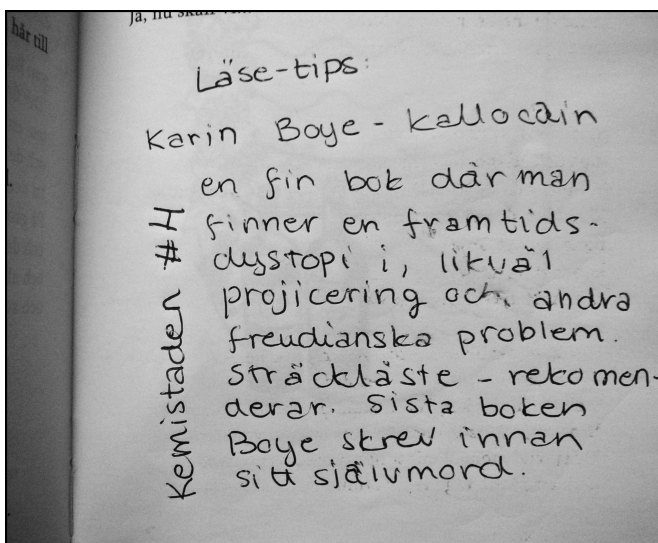 här till
Ja, nu skall
Läse-tips:
Karin Boye - Kallocain
en fin bok där man
finner en framtids-
dystopi i, likväl
projicering och andra
freudianska problem.
Sträckläste - rekomen-
derar. Sista boken
Boye skrev innan
sitt självmord.
Kemistaden #4